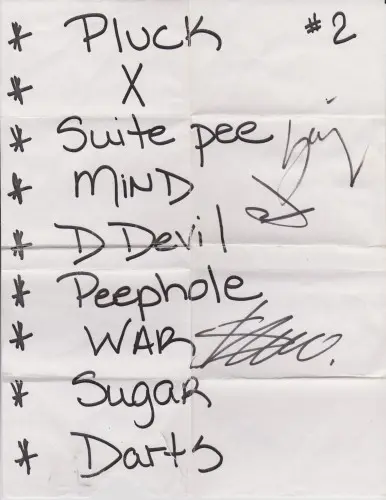 * Pluck #2
* X
* Suite pee
* MIND
* D Devil
* Peephole
* WAR
* Sugar
* Darts